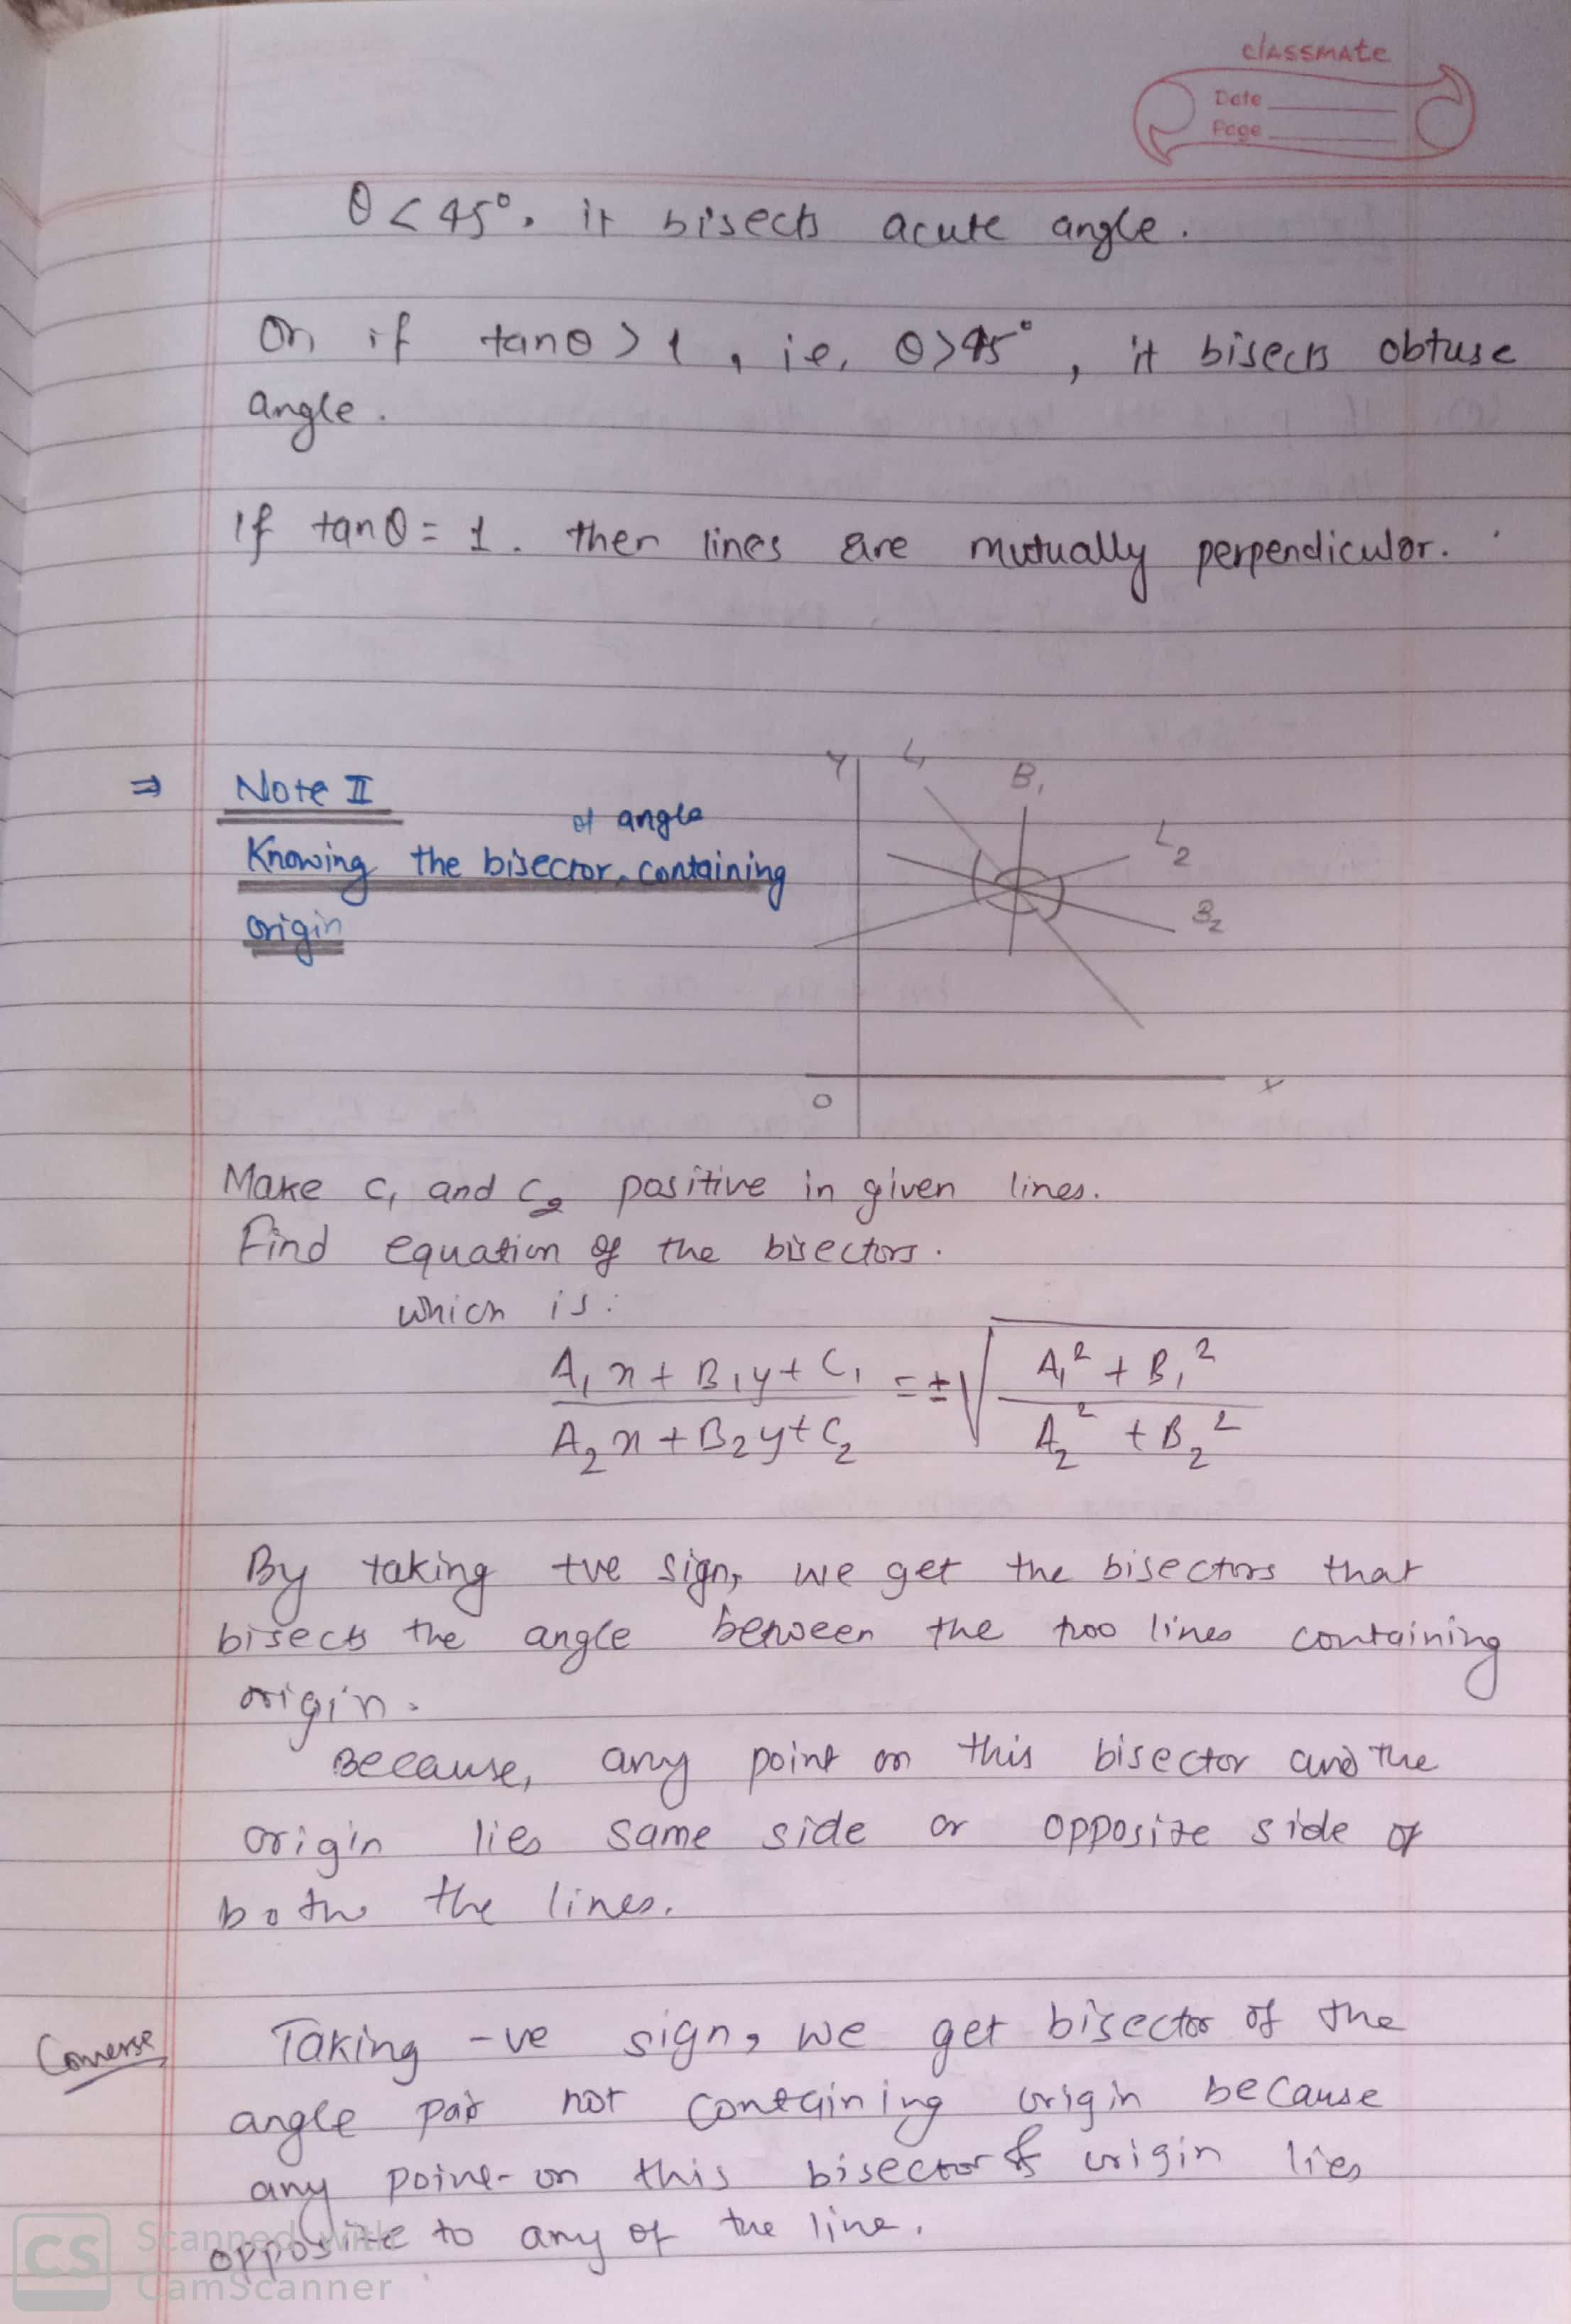 classmate
Date
Page
θ < 45°, it bisects acute angle.
Or if tanθ > 1, ie, θ > 45°, it bisects obtuse
angle.
If tanθ = 1. then lines are mutually perpendicular.
Y L₁ B₁
⇒ Note II
of angle L₂
Knowing the bisector containing
origin B₂
O X
Make C₁ and C₂ positive in given lines.
Find equation of the bisectors.
which is:
A₁x + B₁y + C₁ = ±√ A₁² + B₁²
A₂x + B₂y + C₂ A₂² + B₂²
By taking +ve sign, we get the bisectors that
bisects the angle between the two lines containing
origin.
Because, any point on this bisector and the
origin lies same side or opposite side of
both the lines.
Converse Taking -ve sign, we get bisector of the
angle pair not containing origin because
any point on this bisector & origin lies
opposite to any of the line.
CS Scanned with
CamScanner